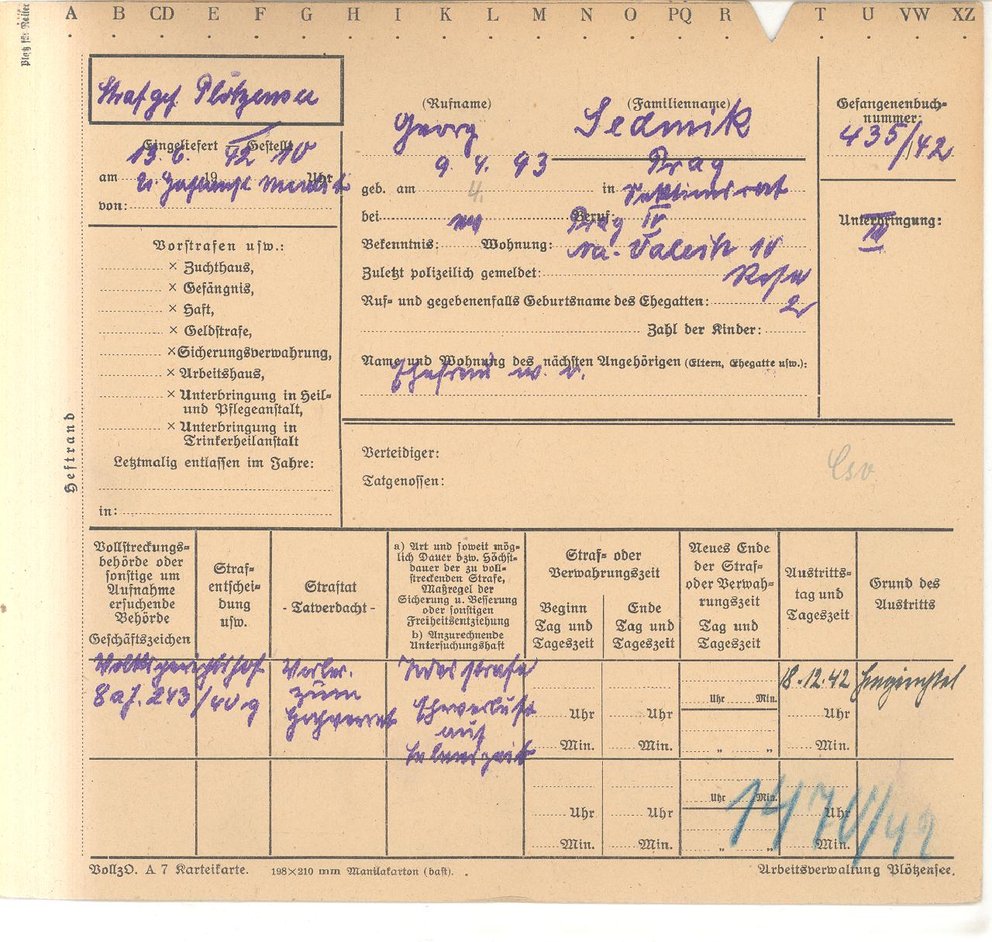 A B CD E F G H I K L M N O PQ R T U VW XZ
Platz für Reiter
Strafgef. Plötzensee
(Rufname) (Familienname)
Georg Sedmik
Gefangenenbuch-
nummer:
435/42
Eingeliefert Gestellt
13. 6. 42 10
am 19 Uhr
U. Haftanst.
von:
9. 4. 93 Prag
geb. am 4. in Sektionsrat
bei Beruf:
Prag IV
Bekenntnis: Wohnung: 10
Zuletzt polizeilich gemeldet:
Ruf- und gegebenenfalls Geburtsname des Ehegatten:
2
Zahl der Kinder:
Name und Wohnung des nächsten Angehörigen (Eltern, Ehegatte usw.):
Ehefrau w. o.
Unterbringung:
III
Vorstrafen usw.:
× Zuchthaus,
× Gefängnis,
× Haft,
× Geldstrafe,
× Sicherungsverwahrung,
× Arbeitshaus,
× Unterbringung in Heil-
und Pflegeanstalt,
× Unterbringung in
Trinkerheilanstalt
Letztmalig entlassen im Jahre:
in:
Heftrand
Verteidiger:
Tatgenossen:
Vollstreckungs-
behörde oder
sonstige um
Aufnahme
ersuchende
Behörde
Geschäftszeichen
Straf-
entschei-
dung
usw.
Straftat
- Tatverdacht -
a) Art und soweit mög-
lich Dauer bzw. Höchst-
dauer der zu voll-
streckenden Strafe,
Maßregel der
Sicherung u. Besserung
oder sonstigen
Freiheitsentziehung
b) Anzurechnende
Untersuchungshaft
Straf- oder
Verwahrungszeit
Beginn
Tag und
Tageszeit
Ende
Tag und
Tageszeit
Neues Ende
der Straf-
oder Verwah-
rungszeit
Tag und
Tageszeit
Austritts-
tag und
Tageszeit
Grund des
Austritts
Volksgerichtshof
8 a J. 243/40 g
Vorber.
zum
Hochverrat
Todesstrafe
Ehrverlust
auf
Lebenszeit
18.12.42 hingerichtet
Uhr Min.
Uhr Uhr Uhr
Min. Min. „ „ Min.
Uhr Min.
Uhr Uhr Uhr
Min. Min. „ „ Min.
1470/42
VollzO. A 7 Karteikarte. 198×210 mm Manilakarton (bast). Arbeitsverwaltung Plötzensee.